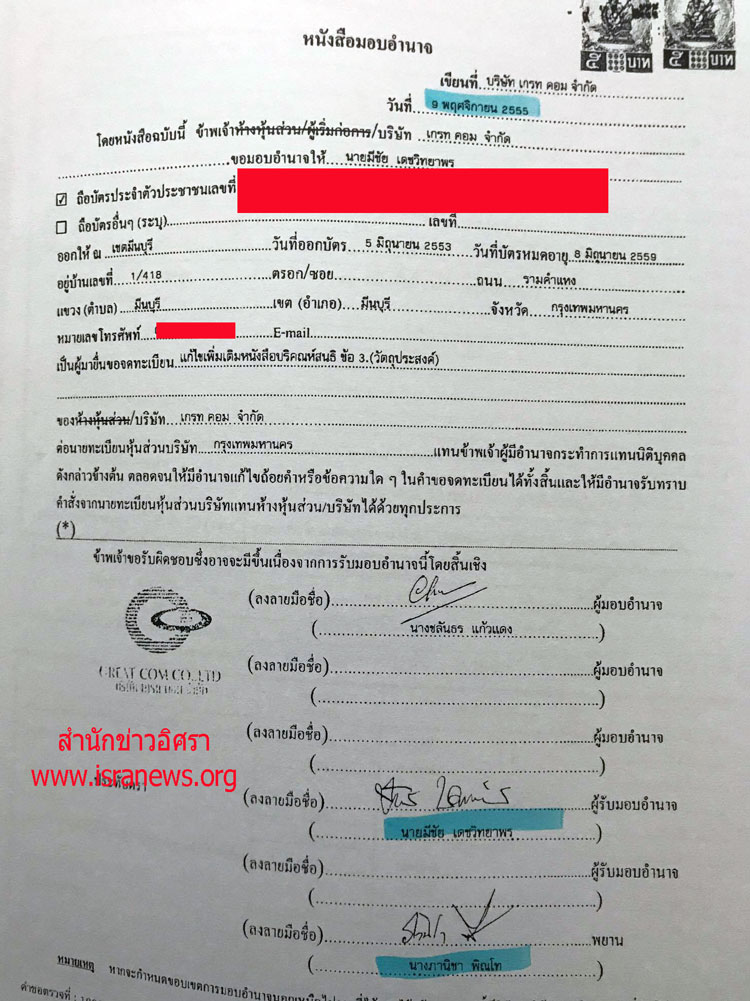 หนังสือมอบอำนาจ
๕ บาท ๕ บาท
เขียนที่ บริษัท เกรท คอม จำกัด
วันที่ 9 พฤศจิกายน 2555
โดยหนังสือฉบับนี้ ข้าพเจ้าห้างหุ้นส่วน/ผู้เริ่มก่อการ/บริษัท เกรท คอม จำกัด
ขอมอบอำนาจให้ นายมีชัย เดชวิทยาพร
☑ ถือบัตรประจำตัวประชาชนเลขที่
☐ ถือบัตรอื่นๆ (ระบุ) เลขที่
ออกให้ ณ เขตมีนบุรี วันที่ออกบัตร 5 มิถุนายน 2553 วันที่บัตรหมดอายุ 8 มิถุนายน 2559
อยู่บ้านเลขที่ 1/418 ตรอก/ซอย ถนน รามคำแหง
แขวง (ตำบล) มีนบุรี เขต (อำเภอ) มีนบุรี จังหวัด กรุงเทพมหานคร
หมายเลขโทรศัพท์ E-mail
เป็นผู้มายื่นขอจดทะเบียน แก้ไขเพิ่มเติมหนังสือบริคณห์สนธิ ข้อ 3.(วัตถุประสงค์)
ของห้างหุ้นส่วน/บริษัท เกรท คอม จำกัด
ต่อนายทะเบียนหุ้นส่วนบริษัท กรุงเทพมหานคร แทนข้าพเจ้าผู้มีอำนาจกระทำการแทนนิติบุคคล
ดังกล่าวข้างต้น ตลอดจนให้มีอำนาจแก้ไขถ้อยคำหรือข้อความใด ๆ ในคำขอจดทะเบียนได้ทั้งสิ้นและให้มีอำนาจรับทราบ
คำสั่งจากนายทะเบียนหุ้นส่วนบริษัทแทนห้างหุ้นส่วน/บริษัทได้ด้วยทุกประการ
(*)
ข้าพเจ้าขอรับผิดชอบซึ่งอาจจะมีขึ้นเนื่องจากการรับมอบอำนาจนี้โดยสิ้นเชิง
(ลงลายมือชื่อ) ผู้มอบอำนาจ
(นางชลันธร แก้วแดง)
GREAT COM CO.,LTD
(ลงลายมือชื่อ) ผู้มอบอำนาจ
( )
สำนักข่าวอิศรา
www.isranews.org
(ลงลายมือชื่อ) ผู้มอบอำนาจ
( )
(ลงลายมือชื่อ) ผู้รับมอบอำนาจ
(นายมีชัย เดชวิทยาพร)
(ลงลายมือชื่อ) ผู้รับมอบอำนาจ
( )
(ลงลายมือชื่อ) พยาน
(นางภานิชา พิณโท)
หมายเหตุ หากจะกำหนดขอบเขตการมอบอำนาจ